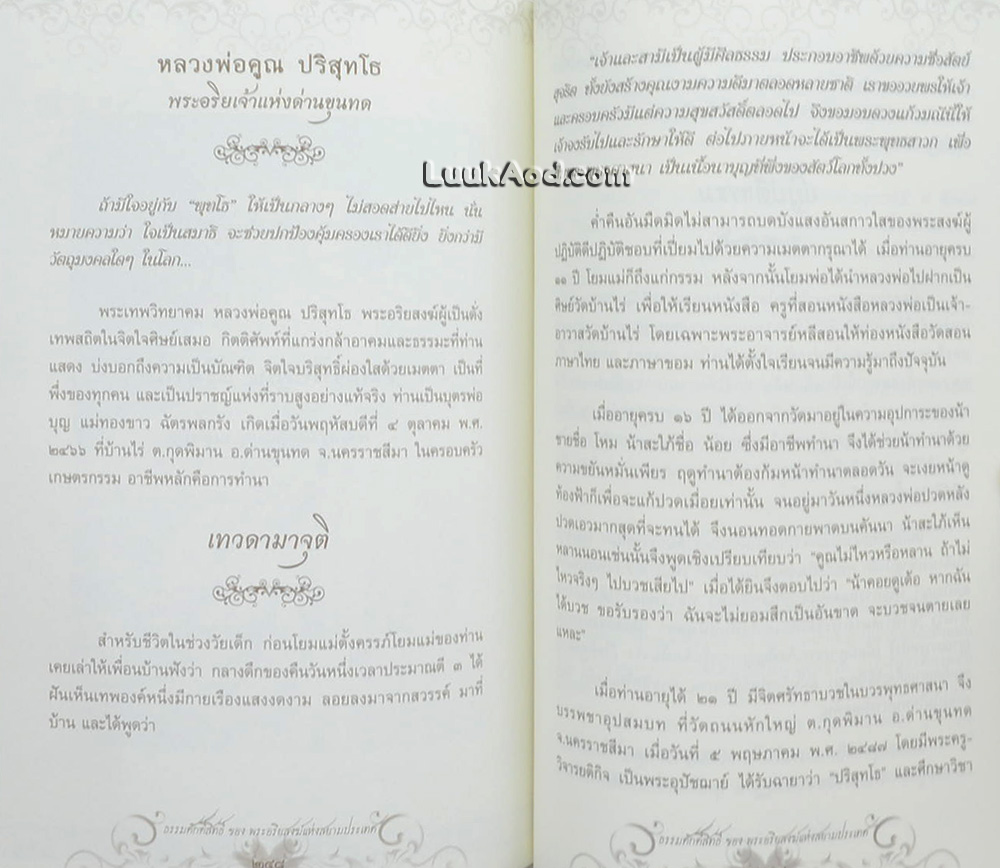 หลวงพ่อคูณ ปริสุทโธ
พระอริยเจ้าแห่งด่านขุนทด
ถ้ามีใจอยู่กับ "พุทโธ" ให้เป็นกลางๆ ไม่สอดส่ายไปไหน นั่น
หมายความว่า ใจเป็นสมาธิ จะช่วยปกป้องคุ้มครองเราได้ดียิ่ง ยิ่งกว่ามี
วัตถุมงคลใดๆ ในโลก...
พระเทพวิทยาคม หลวงพ่อคูณ ปริสุทโธ พระอริยสงฆ์ผู้เป็นดั่ง
เทพสถิตในจิตใจศิษย์เสมอ กิตติศัพท์ที่แกร่งกล้าอาคมและธรรมะที่ท่าน
แสดง บ่งบอกถึงความเป็นบัณฑิต จิตใจบริสุทธิ์ผ่องใสด้วยเมตตา เป็นที่
พึ่งของทุกคน และเป็นปราชญ์แห่งที่ราบสูงอย่างแท้จริง ท่านเป็นบุตรพ่อ
บุญ แม่ทองขาว ฉัตรพลกรัง เกิดเมื่อวันพฤหัสบดีที่ ๔ ตุลาคม พ.ศ.
๒๔๖๖ ที่บ้านไร่ ต.กุดพิมาน อ.ด่านขุนทด จ.นครราชสีมา ในครอบครัว
เกษตรกรรม อาชีพหลักคือการทำนา
เทวดามาจุติ
สำหรับชีวิตในช่วงวัยเด็ก ก่อนโยมแม่ตั้งครรภ์โยมแม่ของท่าน
เคยเล่าให้เพื่อนบ้านฟังว่า กลางดึกของคืนวันหนึ่งเวลาประมาณตี ๓ ได้
ฝันเห็นเทพองค์หนึ่งมีกายเรืองแสงงดงาม ลอยลงมาจากสวรรค์ มาที่
บ้าน และได้พูดว่า
ธรรมศักดิ์สิทธิ์ ของ พระอริยสงฆ์แห่งสยามประเทศ
"เจ้าและสามีเป็นผู้มีศีลธรรม ประกอบอาชีพด้วยความซื่อสัตย์
สุจริต ทั้งยังสร้างคุณงามความดีมาตลอดหลายชาติ เราขออวยพรให้เจ้า
และครอบครัวมีแต่ความสุขสวัสดิ์ตลอดไป จึงขอมอบดวงแก้วมณีนี้ให้
เจ้าจงรับไปและรักษาให้ดี ต่อไปภายหน้าจะได้เป็นพระพุทธสาวก เพื่อ
เป็นเนื้อนาบุญที่พึ่งของสัตว์โลกทั้งปวง"
LuukAod.com
ค่ำคืนอันมืดมิดไม่สามารถบดบังแสงอันสกาวใสของพระสงฆ์ผู้
ปฏิบัติดีปฏิบัติชอบที่เปี่ยมไปด้วยความเมตตากรุณาได้ เมื่อท่านอายุครบ
๑๑ ปี โยมแม่ก็ถึงแก่กรรม หลังจากนั้นโยมพ่อได้นำหลวงพ่อไปฝากเป็น
ศิษย์วัดบ้านไร่ เพื่อให้เรียนหนังสือ ครูที่สอนหนังสือหลวงพ่อเป็นเจ้า-
อาวาสวัดบ้านไร่ โดยเฉพาะพระอาจารย์หลีสอนให้ท่องหนังสือวัดสอน
ภาษาไทย และภาษาขอม ท่านได้ตั้งใจเรียนจนมีความรู้มาถึงปัจจุบัน
เมื่ออายุครบ ๑๖ ปี ได้ออกจากวัดมาอยู่ในความอุปการะของน้า
ชายชื่อ โหม น้าสะใภ้ชื่อ น้อย ซึ่งมีอาชีพทำนา จึงได้ช่วยน้าทำนาด้วย
ความขยันหมั่นเพียร ฤดูทำนาต้องก้มหน้าทำนาตลอดวัน จะเงยหน้าดู
ท้องฟ้าก็เพื่อจะแก้ปวดเมื่อยเท่านั้น จนอยู่มาวันหนึ่งหลวงพ่อปวดหลัง
ปวดเอวมากสุดที่จะทนได้ จึงนอนทอดกายพาดบนคันนา น้าสะใภ้เห็น
หลานนอนเช่นนั้นจึงพูดเชิงเปรียบเทียบว่า "คูณไม่ไหวหรือหลาน ถ้าไม่
ไหวจริงๆ ไปบวชเสียไป" เมื่อได้ยินจึงตอบไปว่า "น้าคอยดูเด้อ หากฉัน
ได้บวช ขอรับรองว่า ฉันจะไม่ยอมสึกเป็นอันขาด จะบวชจนตายเลย
แหละ"
เมื่อท่านอายุได้ ๒๑ ปี มีจิตศรัทธาบวชในบวรพุทธศาสนา จึง
บรรพชาอุปสมบท ที่วัดถนนหักใหญ่ ต.กุดพิมาน อ.ด่านขุนทด
จ.นครราชสีมา เมื่อวันที่ ๕ พฤษภาคม พ.ศ. ๒๔๘๗ โดยมีพระครู-
วิจารยติกิจ เป็นพระอุปัชฌาย์ ได้รับฉายาว่า "ปริสุทโธ" และศึกษาวิชา
ธรรมศักดิ์สิทธิ์ ของ พระอริยสงฆ์แห่งสยามประเทศ